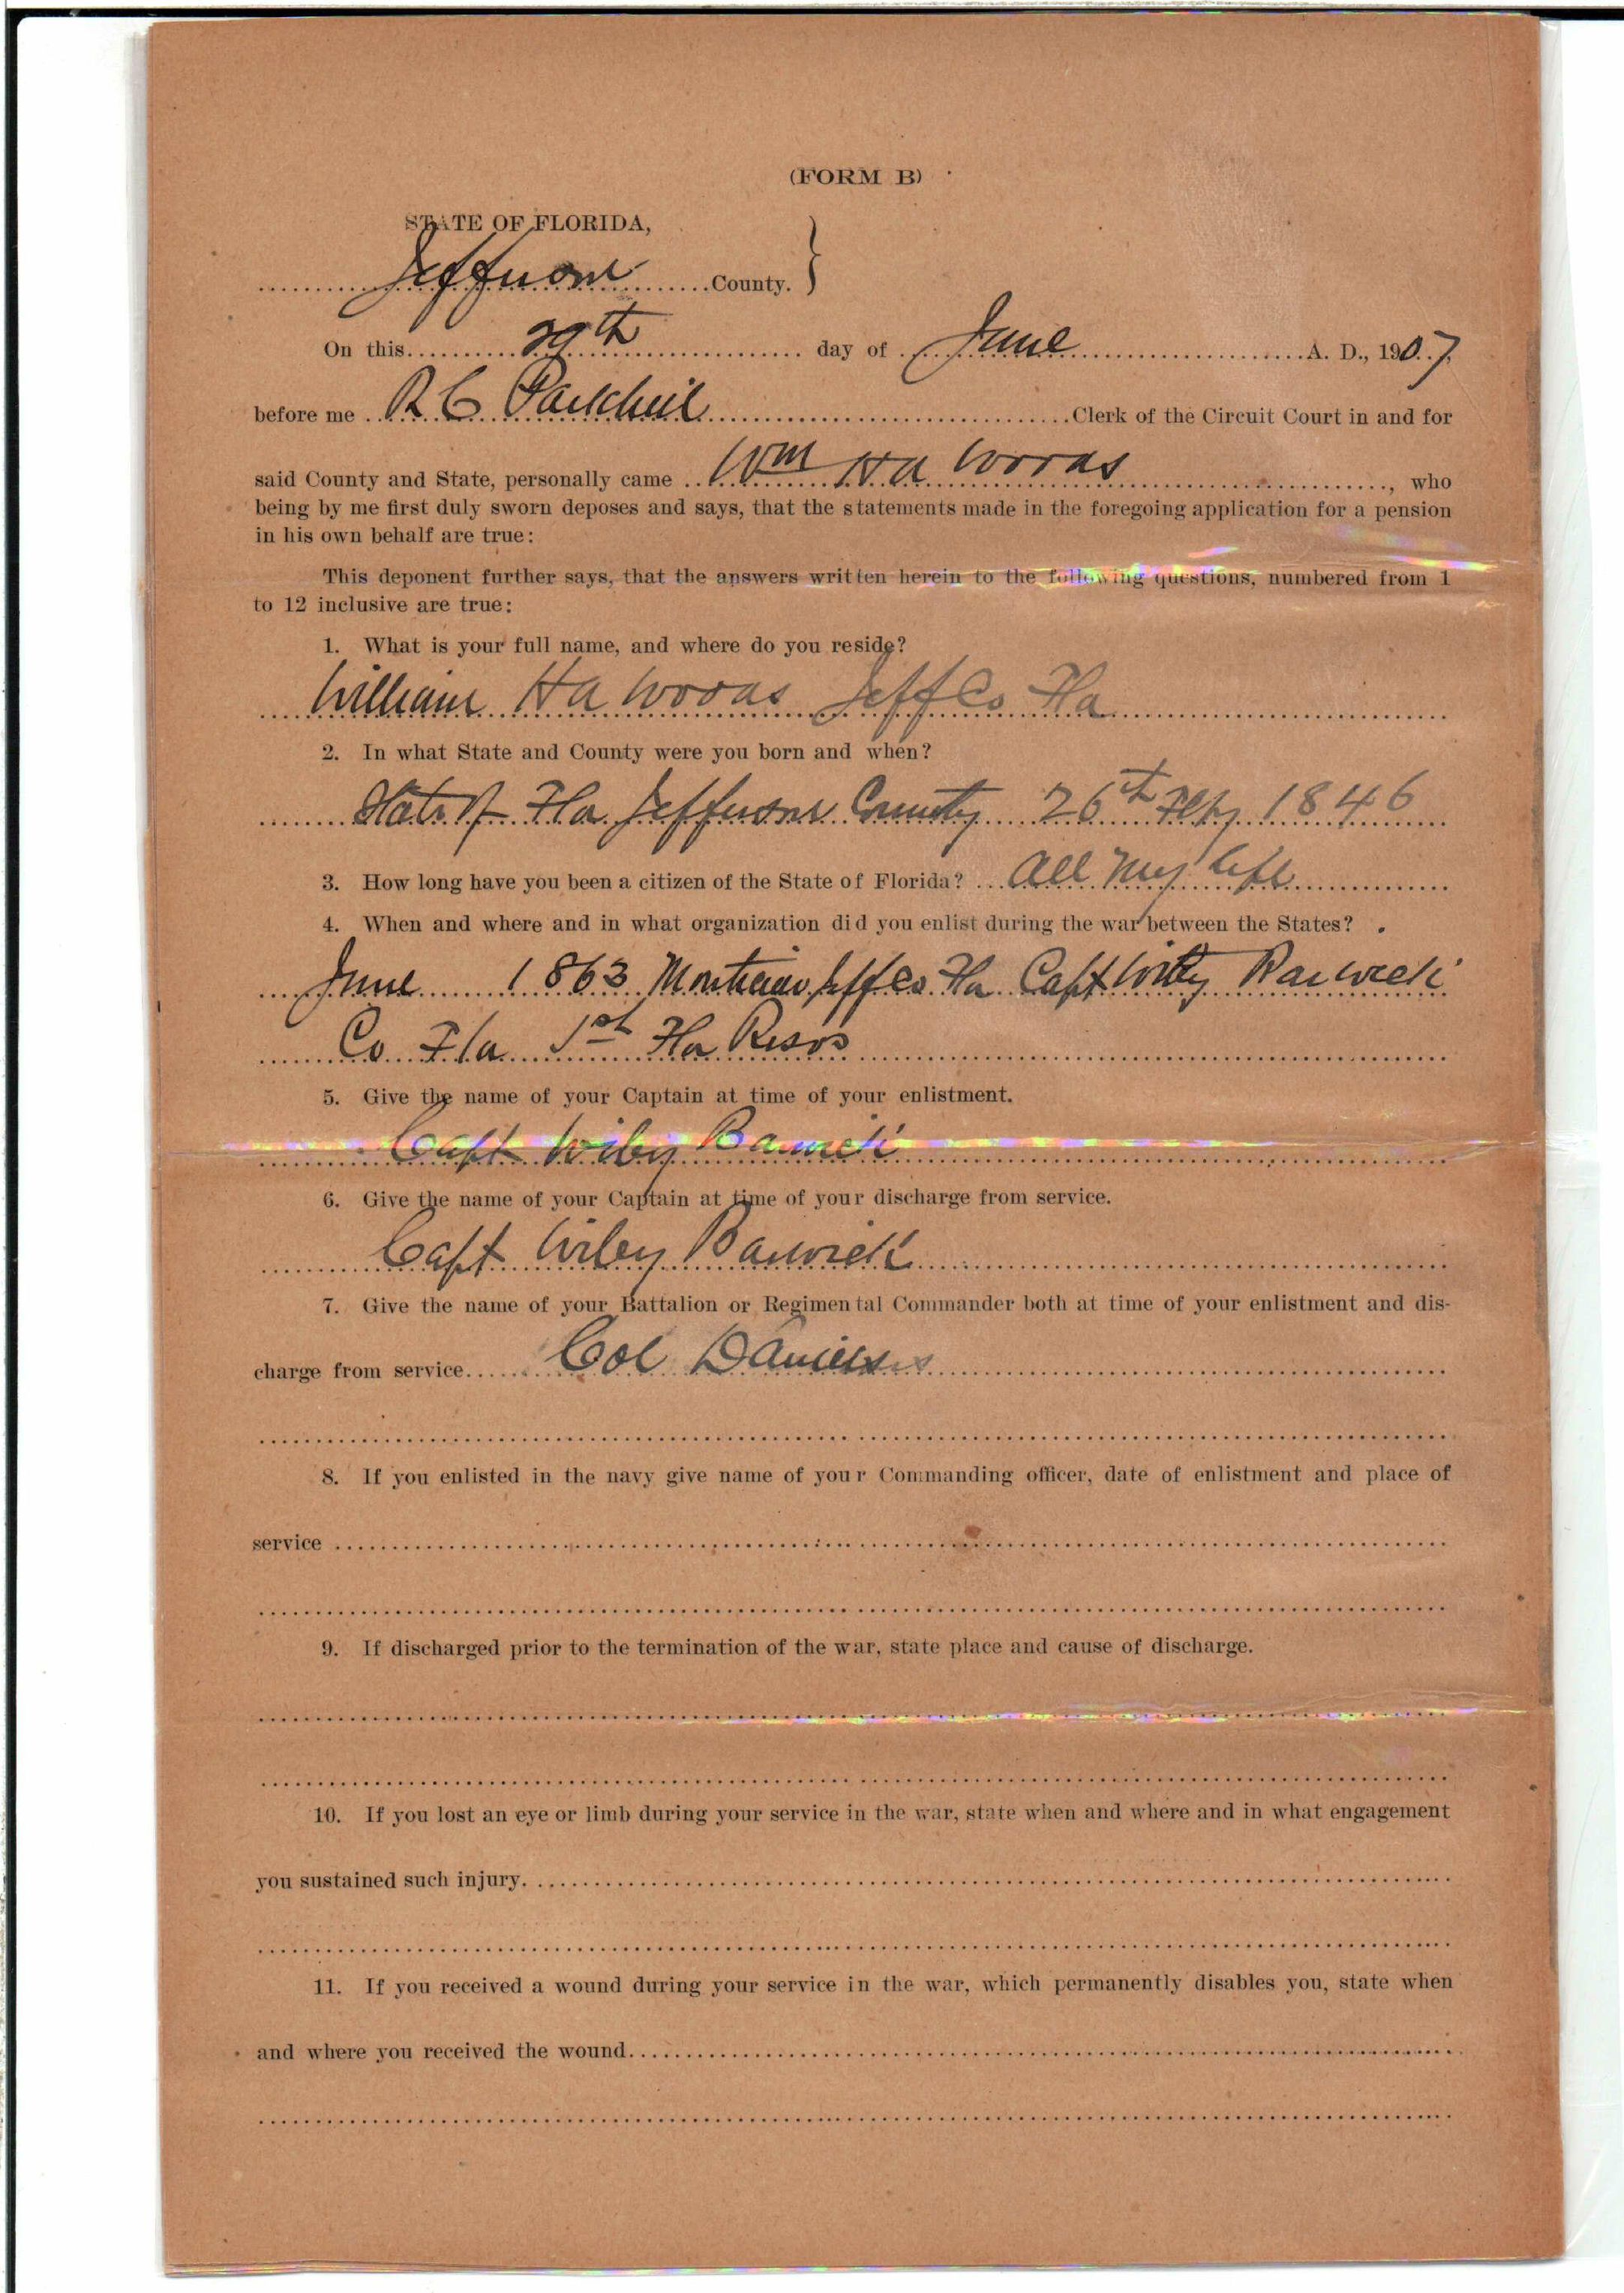 (FORM B)
STATE OF FLORIDA,
Jefferson County.
On this 29th day of June A. D., 1907,
before me R C Parkhill Clerk of the Circuit Court in and for
said County and State, personally came Wm H A Woods, who
being by me first duly sworn deposes and says, that the statements made in the foregoing application for a pension
in his own behalf are true:
This deponent further says, that the answers written herein to the following questions, numbered from 1
to 12 inclusive are true:
1. What is your full name, and where do you reside?
William H A Woods Jeff Co Fla
2. In what State and County were you born and when?
State of Fla Jefferson County 26th 1846
3. How long have you been a citizen of the State of Florida? All my life
4. When and where and in what organization did you enlist during the war between the States?
June 1863 Monticello Jeff Co Fla Capt Barwick
Co Fla 1st Fla Resvs
5. Give the name of your Captain at time of your enlistment.
Capt Wiley Barwick
6. Give the name of your Captain at time of your discharge from service.
Capt Wiley Barwick
7. Give the name of your Battalion or Regimental Commander both at time of your enlistment and dis-
charge from service Col Daniels
8. If you enlisted in the navy give name of your Commanding officer, date of enlistment and place of
service
9. If discharged prior to the termination of the war, state place and cause of discharge.
10. If you lost an eye or limb during your service in the war, state when and where and in what engagement
you sustained such injury.
11. If you received a wound during your service in the war, which permanently disables you, state when
and where you received the wound